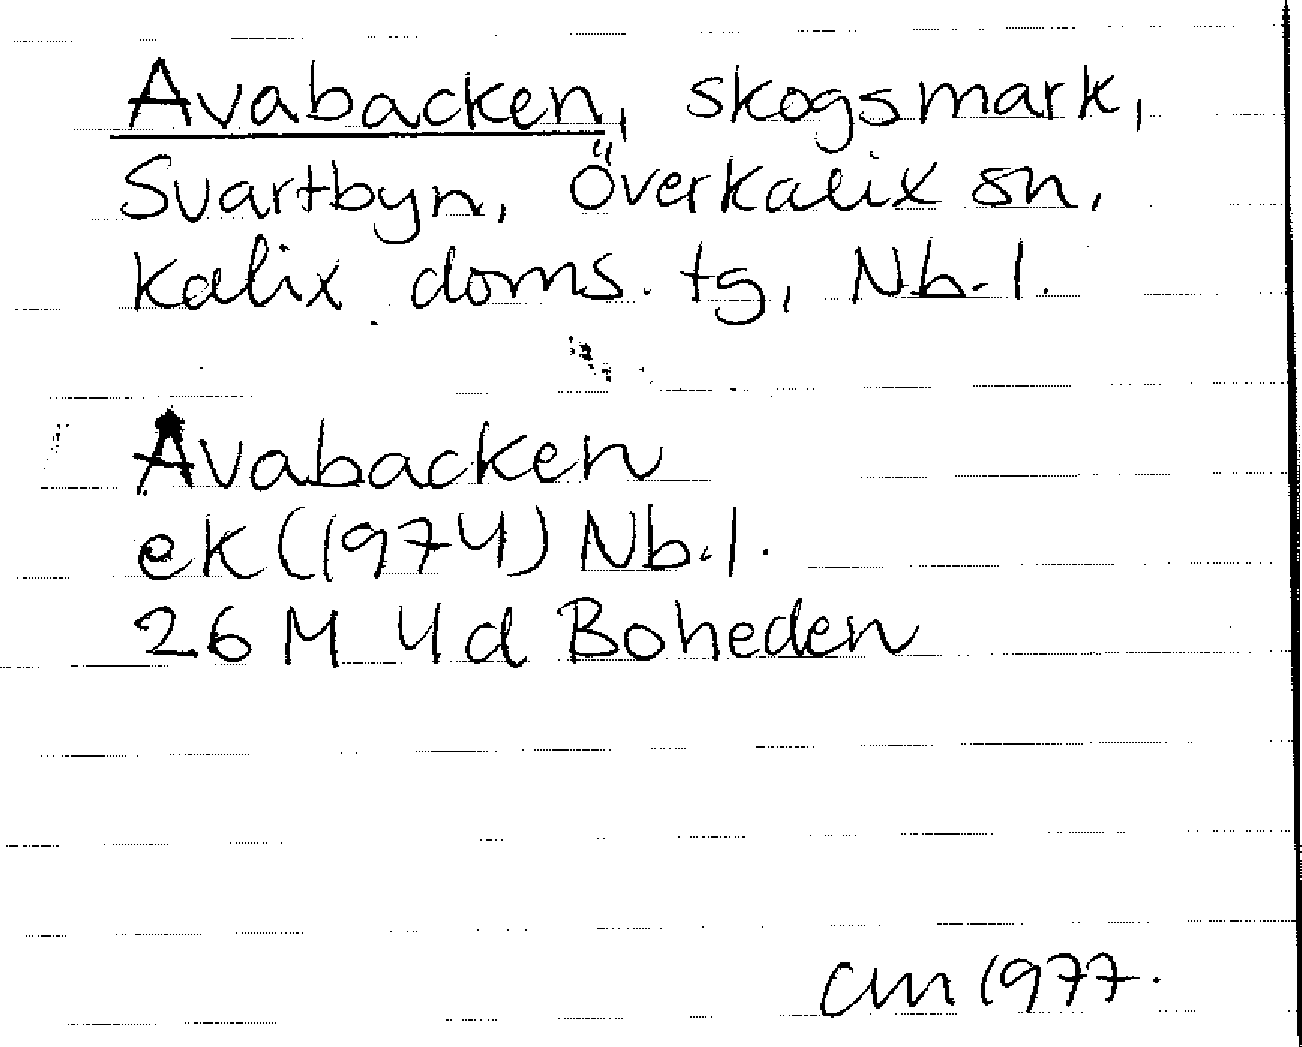 Avabacken, skogsmark,
Svartbyn, Överkalix sn,
Kalix doms. tg, Nb. l.
Avabacken
ek (1974) Nb. l.
26 M 4d Boheden
CM 1977.